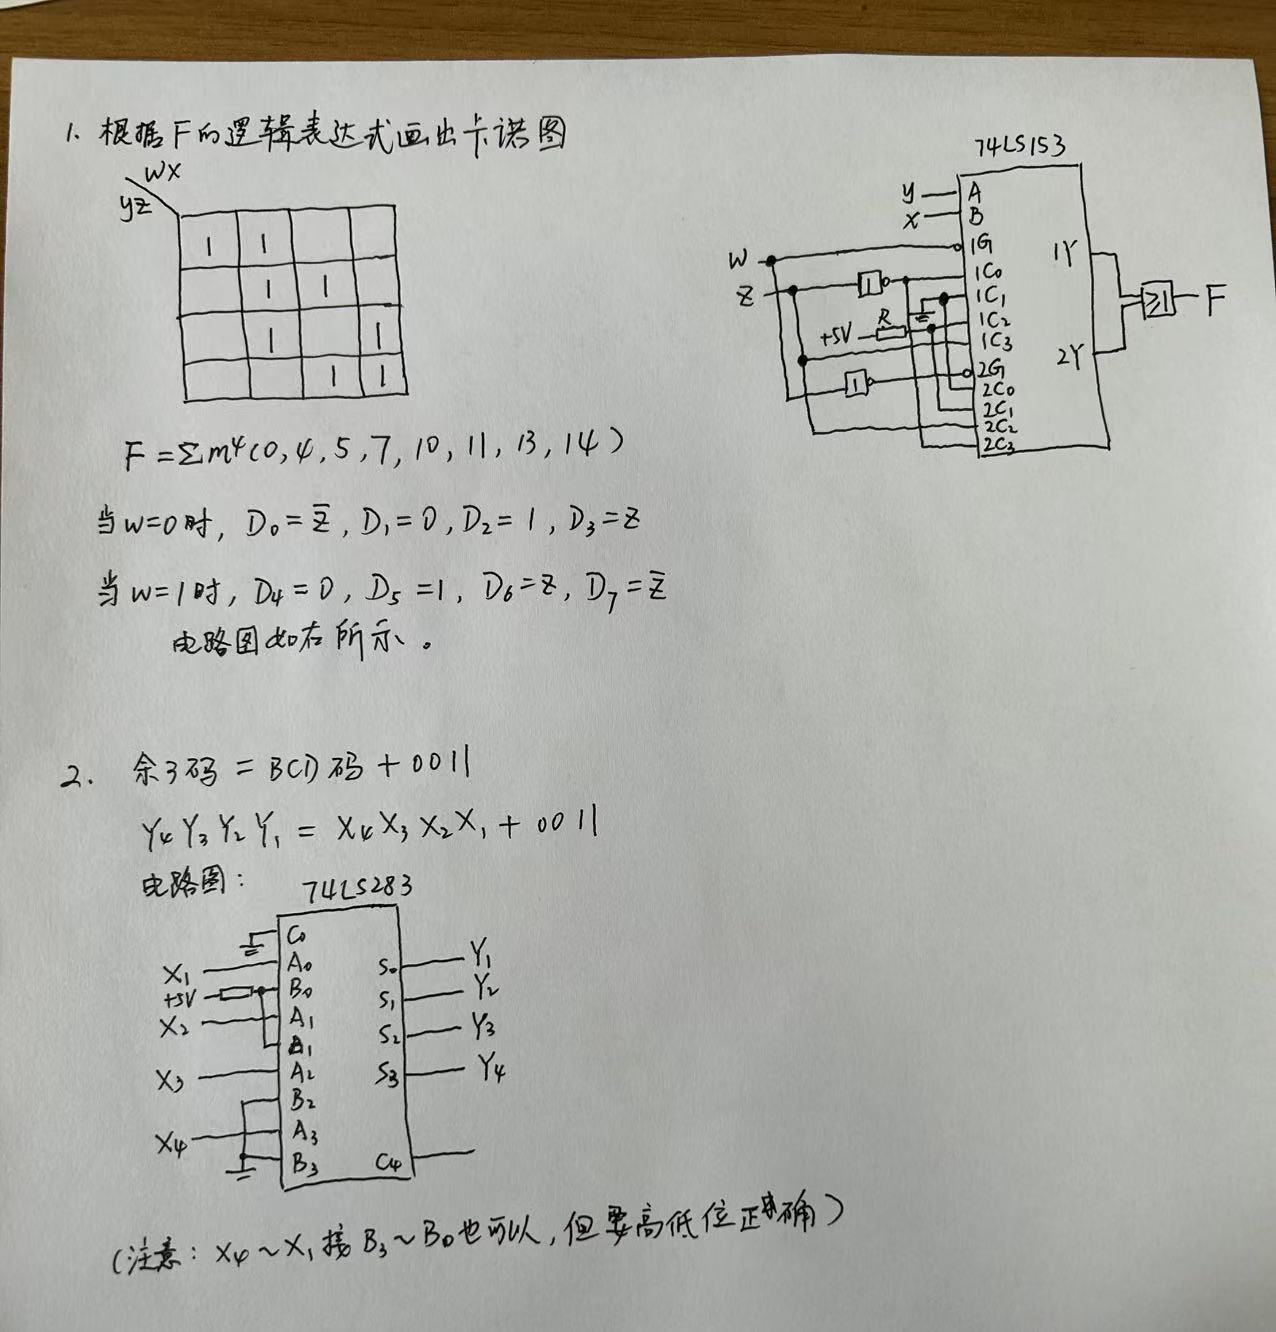 1. 根据F的逻辑表达式画出卡诺图
WX
yz
1 1
1 1
1 1
1 1
F = Σm⁴(0, 4, 5, 7, 10, 11, 13, 14)
当w=0时, D₀=z̄, D₁=0, D₂=1, D₃=z
当w=1时, D₄=0, D₅=1, D₆=z, D₇=z̄
电路图如右所示。
74LS153
y A
x B
W 1G
1Y
Z 1 1C₀
1C₁
≥1 F
+5V R 1C₂
1C₃
2Y
1 2G
2C₀
2C₁
2C₂
2C₃
2. 余3码 = BCD码 + 0011
Y₄Y₃Y₂Y₁ = X₄X₃X₂X₁ + 0011
电路图:
74LS283
C₀
X₁ A₀ S₀ Y₁
+5V B₀
X₂ A₁ S₁ Y₂
B₁ S₂ Y₃
X₃ A₂ S₃ Y₄
B₂
X₄ A₃
B₃ C₄
(注意: X₄~X₁接B₃~B₀也可以, 但要高低位正确)